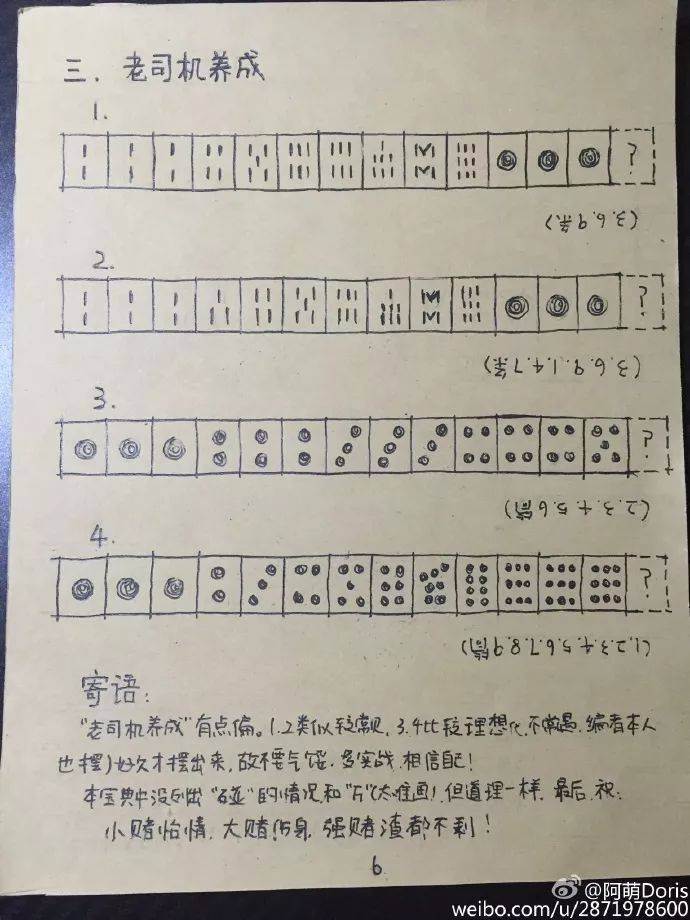 三. 老司机养成
1.
?
(3.6.9条)
2.
?
(3.6.9.1.4.7条)
3.
?
(2.3.4.5.6筒)
4.
?
(1.2.3.4.5.6.7.8.9筒)
寄语:
"老司机养成"有点偏。1.2类似较常规, 3.4比较理想化,不常遇. 编者本人
也摆了好久才摆出来, 故不要气馁. 多实战. 相信自己!
本宝典中没列出"碰"的情况和"万"(太难画), 但道理一样. 最后. 祝:
小赌怡情. 大赌伤身. 强赌渣都不剩!
6
@阿萌Doris
weibo.com/u/2871978600